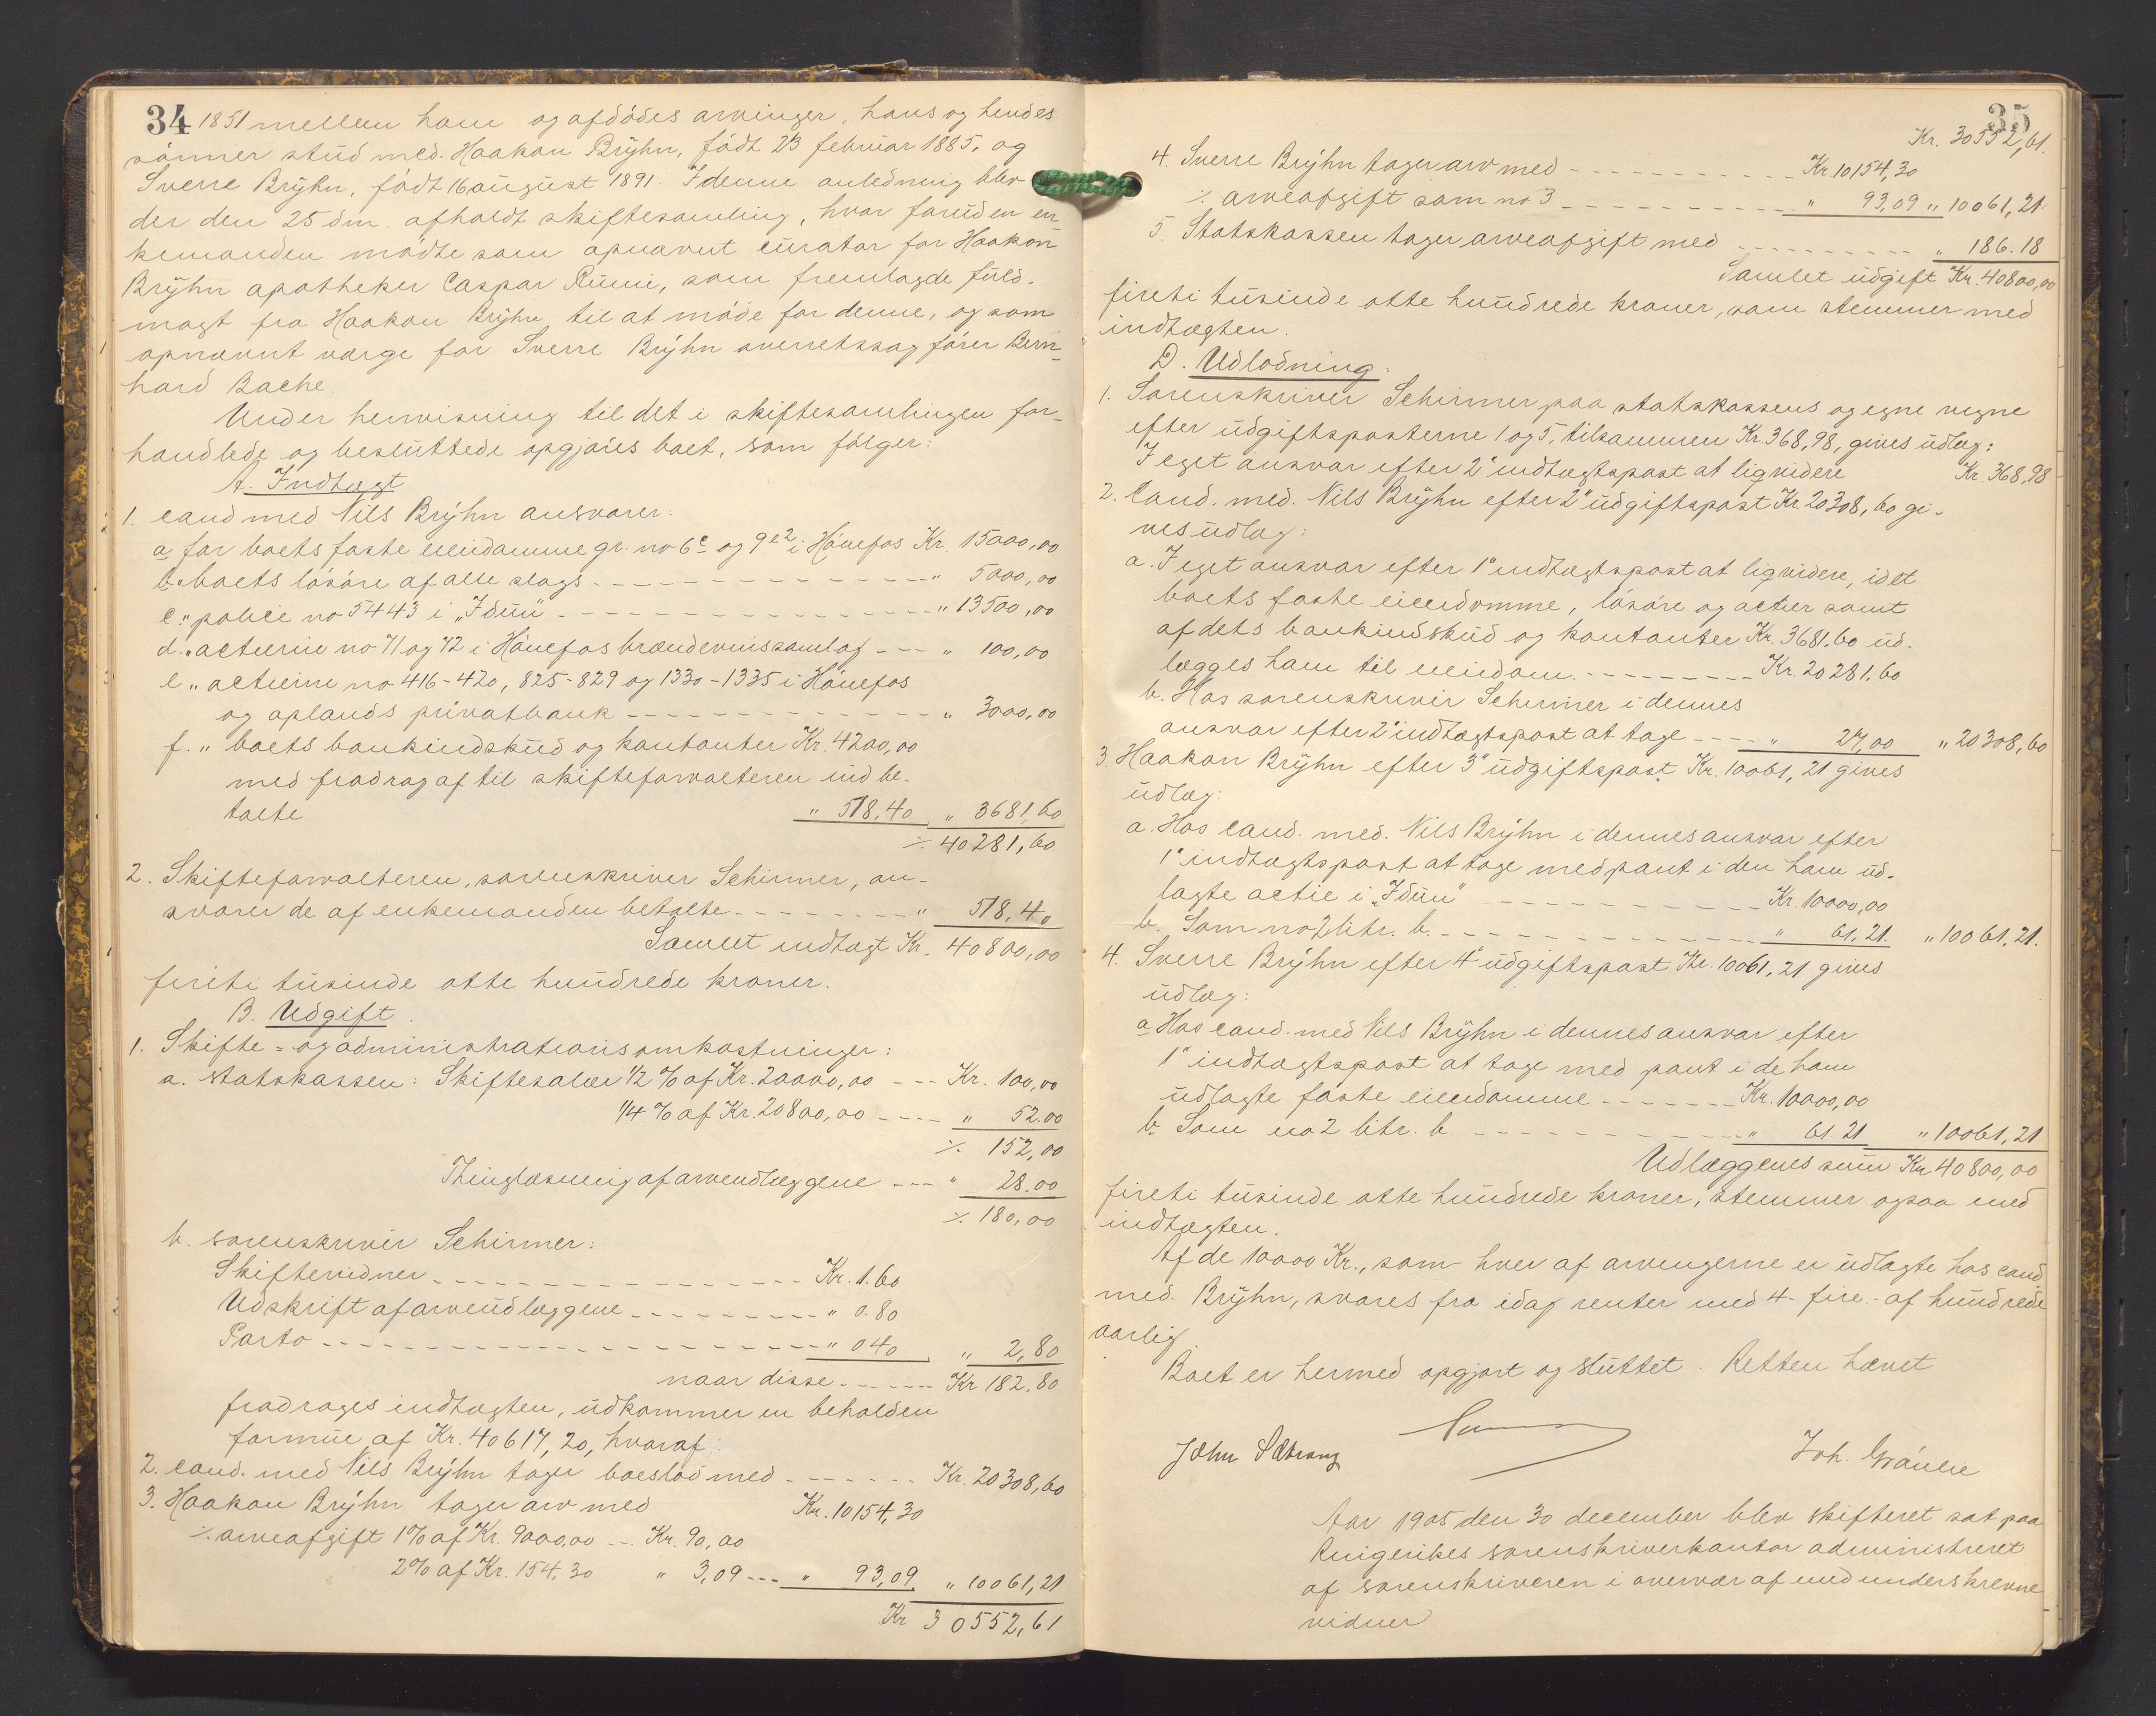 34 1851 mellem ham og afdødes arvinger, hans og hendes
sønner stud med. Haakon Brÿhn, født 23 februar 1885, og
Sverre Brÿhn, født 16 august 1891. I denne anledning blev
der den 25 dm. afholdt skiftesamling, hvor foruden en-
kemanden mødte som opnævnt curator for Haakon
Brÿhn apotheker Caspar, som fremlagde fuld-
magt fra Haakon Brÿhn til at møde for denne, og som
opnævnt værge for Sverre Brÿhn overretssagfører Bern-
hard Bache.
Under henvisning til det i skiftesamlingen for-
handlede og besluttede opgjøres boet, som følger:
A. Indtægt
1. Cand med Nils Brÿhn ansvarer:
a for boets faste eiendomme gr. no 6c og 9e2 i Hønefos Kr. 15000,00
b. " boets løsøre af alle slags " 5000,00
c. " police no 5443 i "Idun" " 13500,00
d. " actierne no 71 og 72 i Hønefos brændevinssamlag " 100,00
e " actierne no 416-420, 825-829 og 1330-1335 i Hønefos
og oplands privatbank " 3000,00
f. " boets bankindskud og kontanter Kr. 4200,00
med fradrag af til skifteforvalteren indbe-
talte " 518,40 " 3681,60
⁒ 40281,60
2. Skifteforvalteren, sorenskriver Schirmer, an-
svarer de af enkemanden betalte " 518,40
Samlet indtægt Kr. 40800,00
fireti tusinde otte hundrede kroner.
B. Udgift.
1. Skifte- og administrationsomkostninger:
a. Statskassen: Skiftesalær 1/2 % af Kr. 20000,00 Kr. 100,00
1/4 % af Kr. 20800,00 " 52.00
⁒ 152,00
Thinglæsning af arveudlæggene " 28.00
⁒ 180,00
b. sorenskriver Schirmer:
Skiftevidner Kr. 1.60
Udskrift af arveudlæggene " 0.80
Porto " 040 " 2,80
naar disse Kr 182,80
fradrages indtægten, udkommer en beholden
formue af Kr. 40617,20, hvoraf:
2. Cand. med Nils Brÿhn tager boeslod med Kr. 20308,60
3. Haakon Brÿhn tager arv med Kr. 10154,30
⁒ arveafgift 1% af Kr. 9000,00 Kr. 90,00
2% af Kr. 154,30 " 3,09 " 93,09 " 10061,21
Kr 30552,61
35
Kr. 30552,61.
4. Sverre Brÿhn tager arv med Kr 10154,30
⁒ arveafgift som no 3 " 93,09 " 10061,21
5. Statskassen tager arveafgift med " 186.18
Samlet udgift Kr. 40800,00
fireti tusinde otte hundrede kroner, som stemmer med
indtægten.
D. Udlodning.
1. Sorenskriver Schirmer paa statskassens og egne vegne
efter udgiftsposterne 1 og 5, tilsammen Kr. 368,98, gives udlæg:
I eget ansvar efter 2° indtægtspost at ligvidere Kr. 368,98
2. Cand. med. Nils Brÿhn efter 2° udgiftspost Kr. 20308,60 gi-
ves udlæg:
a. I eget ansvar efter 1° indtægtspost at ligvidere, idet
boets faste eiendomme, løsøre og actier samt
af dets bankindskud og kontanter Kr. 3681.60 ud-
lægges ham til eiendom. Kr. 20281.60
b. Hos sorenskriver Schirmer i dennes
ansvar efter 2° indtægtspost at tage " 27,00 " 20308,60
3. Haakon Brÿhn efter 3° udgiftspost Kr. 10061,21 gives
udlæg:
a. Hos Cand. med. Nils Brÿhn i dennes ansvar efter
1° indtægtspost at tage med pant i den ham ud-
lagte actie i "Idun" Kr. 10000,00
b. Som no 2 litr. b. " 61,21. " 10061,21.
4. Sverre Brÿhn efter 4° udgiftspost Kr. 10061,21 gives
udlæg:
a Hos cand. med Nils Brÿhn i dennes ansvar efter
1° indtægtspost at tage med pant i de ham
udlagte faste eiendomme Kr. 10000,00
b. Som no 2 litr. b. " 61.21 " 10061,21
Udlæggenes sum Kr. 40800,00
fireti tusinde otte hundrede kroner, stemmer ogsaa med
indtægten.
Af de 10000 Kr., som hver af arvingerne er udlagte hos cand
med. Brÿhn, svares fra idag renter med 4 - fire - af hundrede
aarlig.
Boet er hermed opgjort og sluttet. Retten hævet
John Joh.
Aar 1905 den 30 december blev skifteret sat paa
Ringerikes sorenskriverkontor administreret
af sorenskriveren i overvær af medunderskrevne
vidner